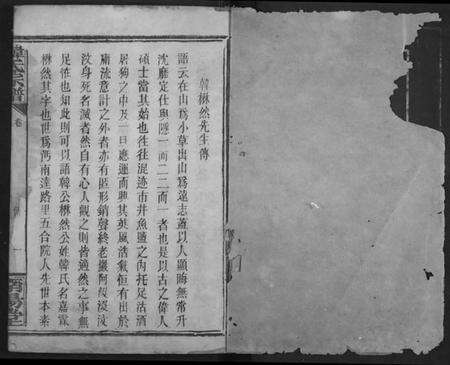 韓楙然先生傳
語云在山爲小草出山爲遠志蓋以人顯晦無常升
沈靡定仕與隱一而二二而一者也是以古之偉人
碩士當其始也往往混迹市井魚鹽之內托足沽酒
屠狗之中及一旦應運而興其英風浩氣恒有出於
庸流意計之外者亦有匿形銷聲終老巖阿沒
汶身死名滅者然自有心人觀之則皆適然之事無
足怪也如此則可以誦韓公楙然公姓韓氏名嘉
楙然其字也世爲丙南達路里五合院人先世本素
韓氏宗譜
卷
一